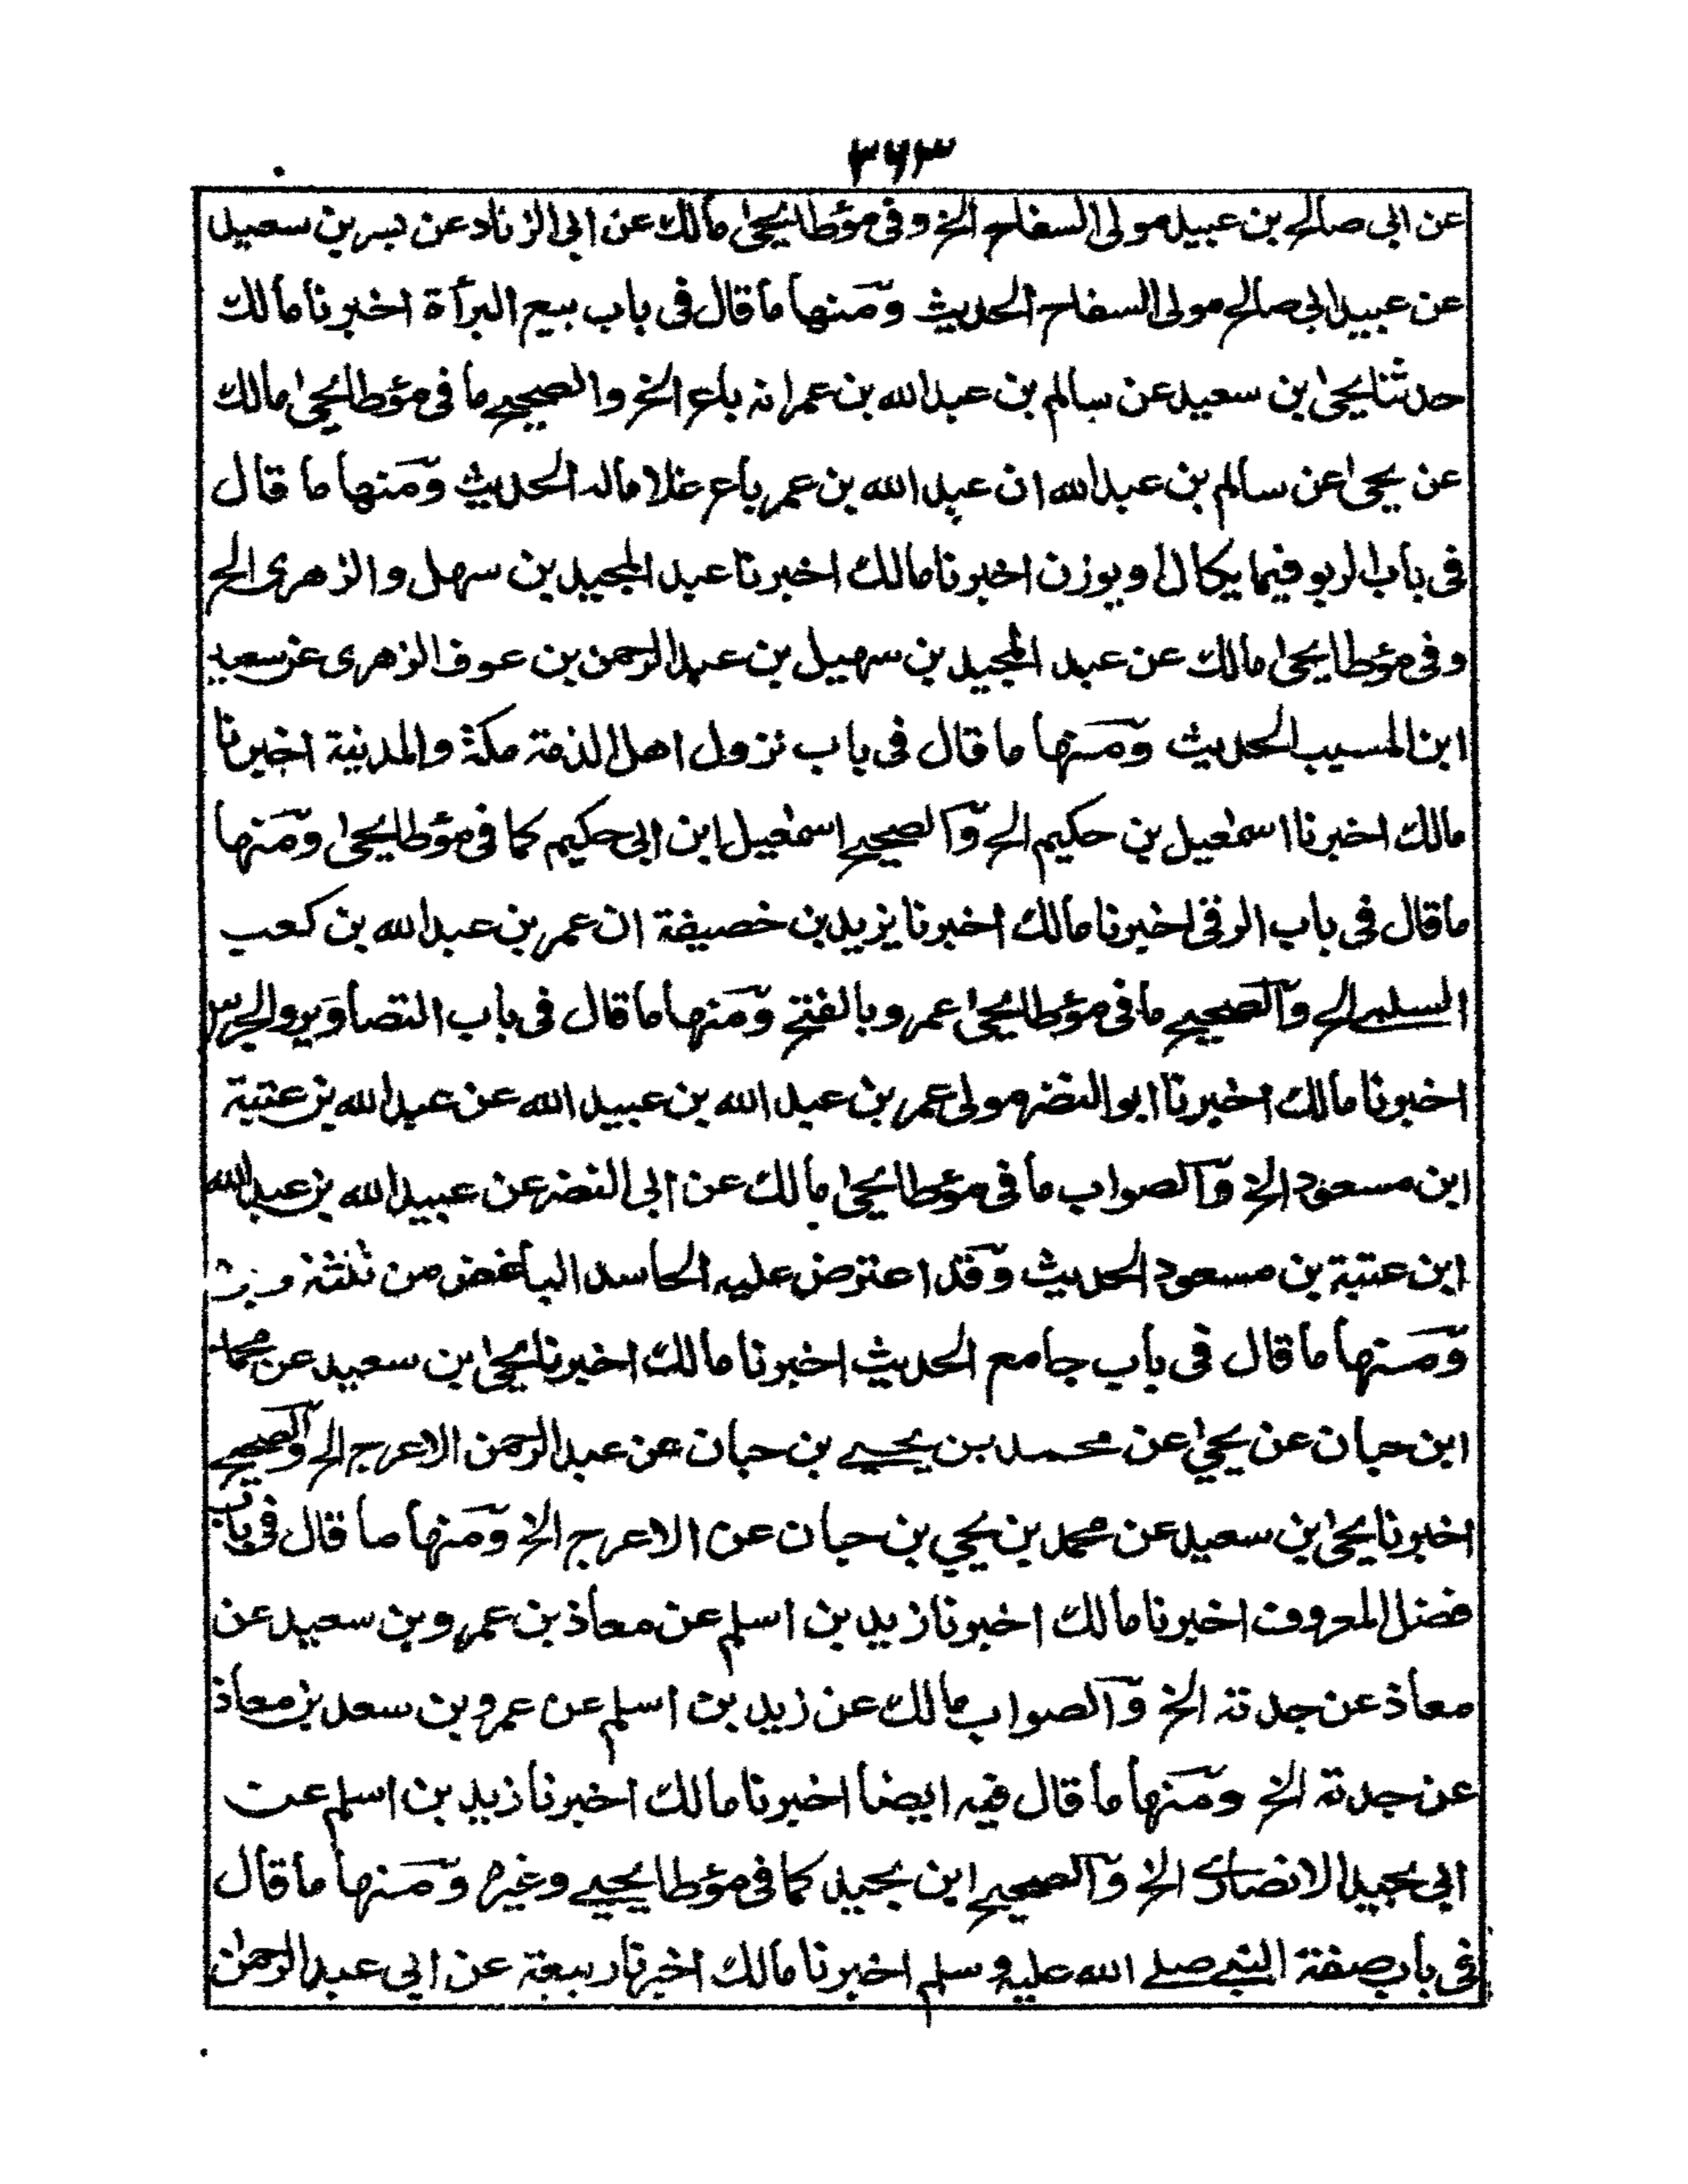 ٣٦٣
عن ابي صالح بن عبيد مولى السفاح الخ وفى مؤطا يحيى مالك عن ابى الزناد عن بسر بن سعيد
عن عبيد ابى صالح مولى السفاح الحديث ومنها ما قال فى باب بيع البرأة اخبرنا مالك
حدثنا يحيى بن سعيد عن سالم بن عبد الله بن عمر انه باع الخ والصحيح ما فى مؤطا يحيى مالك
عن يحيى عن سالم بن عبد الله ان عبد الله بن عمر باع غلاما له الحديث ومنها ما قال
فى باب الربو فيما يكال او يوزن اخبرنا مالك اخبرنا عبد المجيد بن سهل و الزهرى الخ
وفى مؤطا يحيى مالك عن عبد المجيد بن سهيل بن عبد الرحمن بن عوف الزهرى عن سعيد
ابن المسيب الحديث ومنها ما قال فى باب نزول اهل الذمة مكة والمدينة اخبرنا
مالك اخبرنا اسمعيل بن حكيم الخ والصحيح اسمعيل ابن ابى حكيم كما فى مؤطا يحيى ومنها
ما قال فى باب الرقى اخبرنا مالك اخبرنا يزيد بن خصيفة ان عمر بن عبد الله بن كعب
السلمى الخ والصحيح ما فى مؤطا يحيى عمرو بالفتح ومنها ما قال فى باب التصاوير والجرس
اخبرنا مالك اخبرنا ابو النضر مولى عمر بن عبد الله بن عبيد الله عن عبد الله بن عتبة
ابن مسعود الخ والصواب ما فى مؤطا يحيى مالك عن ابى النضر عن عبيد الله بن عبد الله
ابن عتبة بن مسعود الحديث وقد اعترض عليه الحاسد الباغض من ثلثة
ومنها ما قال فى باب جامع الحديث اخبرنا مالك اخبرنا يحيى بن سعيد عن محمد
ابن حبان عن يحيى عن محمد بن يحيى بن حبان عن عبد الرحمن الاعرج الخ والصحيح
اخبرنا يحيى بن سعيد عن محمد بن يحيي بن حبان عن الاعرج الخ ومنها ما قال فى باب
فضل المعروف اخبرنا مالك اخبرنا زيد بن اسلم عن معاذ بن عمرو بن سعيد عن
معاذ عن جدته الخ والصواب مالك عن زيد بن اسلم عن عمرو بن سعد بن معاذ
عن جدته الخ ومنها ما قال فيه ايضا اخبرنا مالك اخبرنا زيد بن اسلم عن
ابي بجيد الانصارى الخ والصحيح ابن بجيد كما فى مؤطا يحيى وغيره ومنها ما قال
فى باب صفة النبى صلى الله عليه و سلم اخبرنا مالك اخبرنا ربيعة عن ابي عبد الرحمن